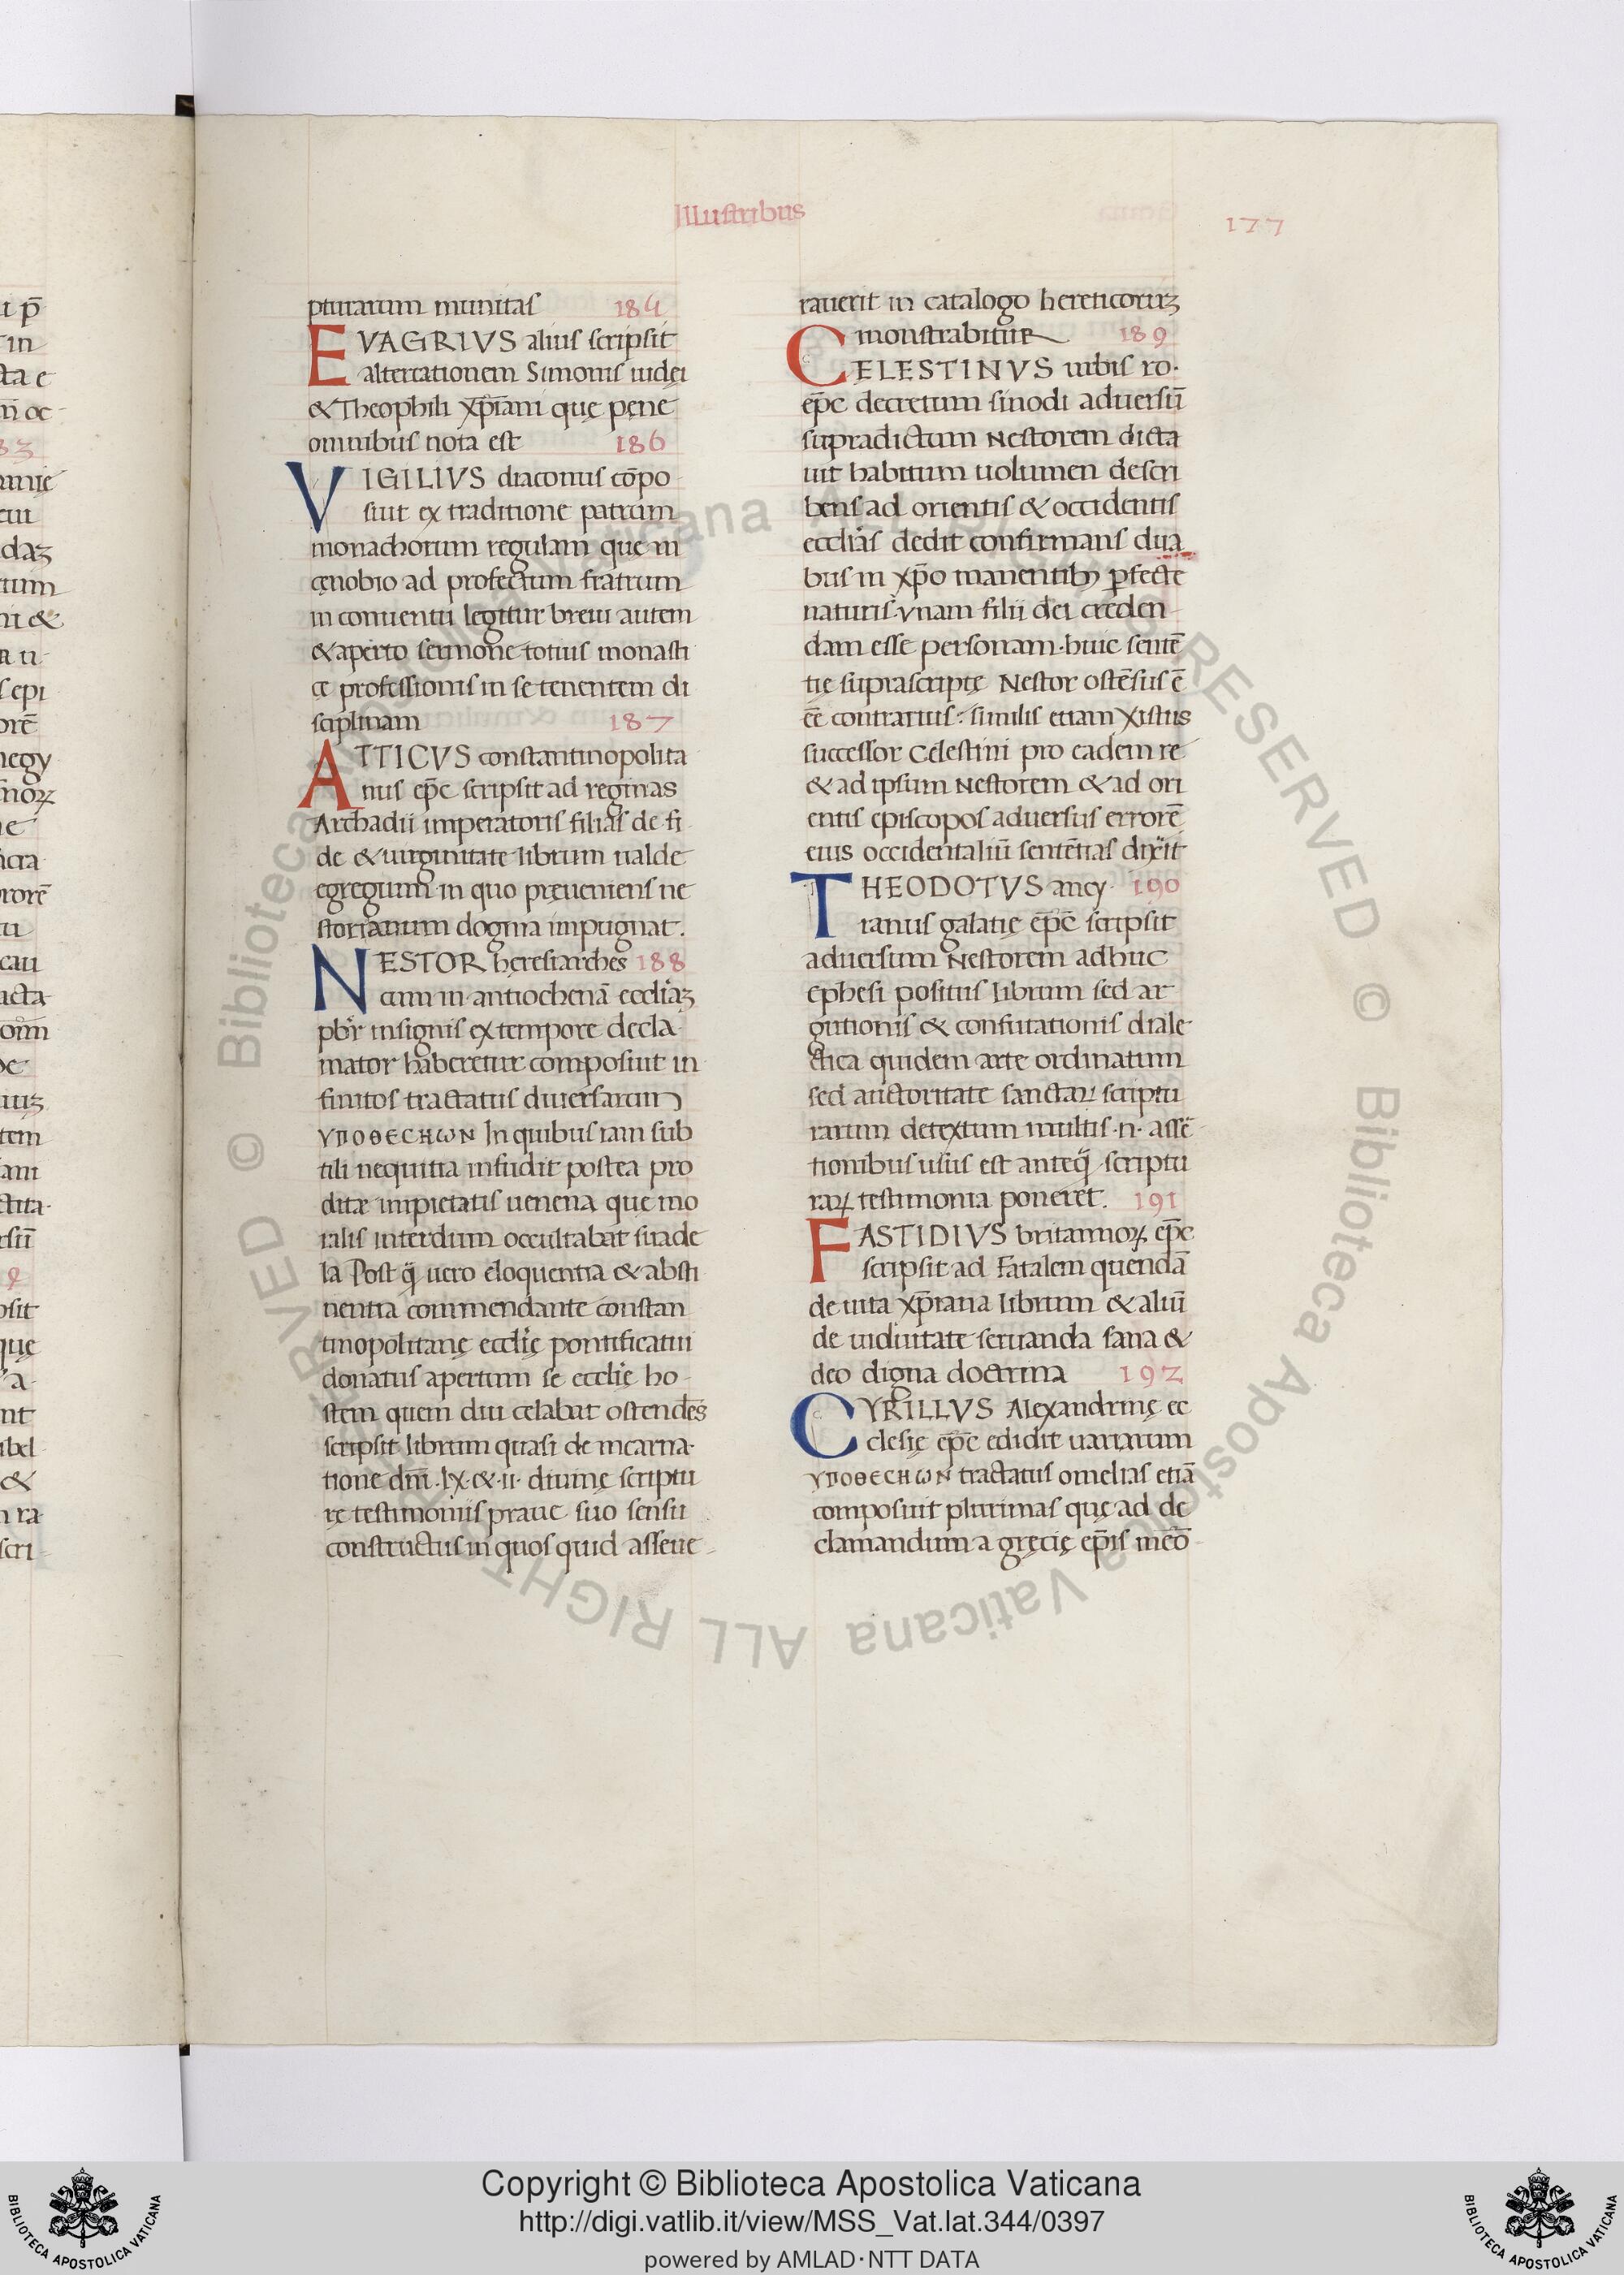 Illustribus
177
pturarum munitas 184
EVAGRIUS alius scripsit
altercationem Simonis iudei
& Theophili xp̄iani quę pene
omnibus nota est 186
VIGILIVS diaconus cōpo
suit ex traditione patrum
monachorum regulam que in
cęnobio ad profectum fratrum
in conuentu legitur breui autem
& aperto sermone totius monasti
cę professionis in se tenentem di
sciplinam 187
ATTICVS constantinopolita
nus ep̄c scripsit ad reginas
Archadii imperatoris filias de fi
de & uirginitate librum ualde
egregium in quo pręueniens ne
storianum dogma impugnat.
NESTOR heresiarches 188
cum in antiochenā eccliaꝫ
pbr̄ insignis ex tempore decla
mator haberetur composuit in
finitos tractatus diuersarum
ΥΠΟΘΕCΗωΝ In quibus iam sub
tili nequitia infudit postea pro
ditæ impietatis uenena que mo
ralis interdum occultabat suade
la Post q̄ uero eloquentia & absti
nentia commendante constan
tinopolitanę ecclię pontificatui
donatus apertum se ecclię ho-
stem quem diu celabat ostendēs
scripsit librum quasi de incarna-
tione dn̄i·lx·&·ii· diuinę scriptu
rę testimoniis praue suo sensu
constructus in quos quid asseue-
rauerit in catalogo hereticoruꝫ
monstrabitur 189
CELESTINVS urbis ro·
ep̄c decretum sinodi aduersū
supradictum Nestorem dicta
uit habitum uolumen descri
bens ad orientis & occidentis
ecclias dedit confirmans dua
bus in xp̄o manentibꝫ ꝑfecte
naturis·vnam filii dei creden-
dam esse personam·huic sentē
tię suprascriptę Nestor ostēsus ē
ēē contrarius: similis etiam Xistus
successor Celestini pro eadem re
& ad ipsum Nestorem & ad ori
entis episcopos aduersus errorē
eius occidentaliū sentētias dixit
THEODOTVS ancy 190
ranus galatię ep̄c scripsit
aduersum Nestorem adhuc
ephesi positus librum sed ar
gutionis & confutationis diale
ctica quidem arte ordinatum
sed auctoritate sanctaꝝ scriptu
rarum detextum multis·n·asse
tionibus usus est anteq̄ scriptu
raꝝ testimonia poneret. 191
FASTIDIVS britannoꝝ ep̄c
scripsit ad Fatalem quendā
de uita xp̄iana librum & aliū
de uiduitate seruanda sana &
deo digna doctrina 192
CYRILLVS Alexandrinę ec
clesię ep̄c edidit uariarum
ΥΠΟΘΕCΗωΝ tractatus omelias etiā
composuit plurimas quę ad de
clamandum a gręcię ep̄is mēō
© Biblioteca Apostolica Vaticana ALL RIGHTS RESERVED © Biblioteca Apostolica Vaticana ALL RIGHTS RESERVED
Copyright © Biblioteca Apostolica Vaticana
http://digi.vatlib.it/view/MSS_Vat.lat.344/0397
powered by AMLAD·NTT DATA
BIBLIOTECA APOSTOLICA VATICANA
BIBLIOTECA APOSTOLICA VATICANA